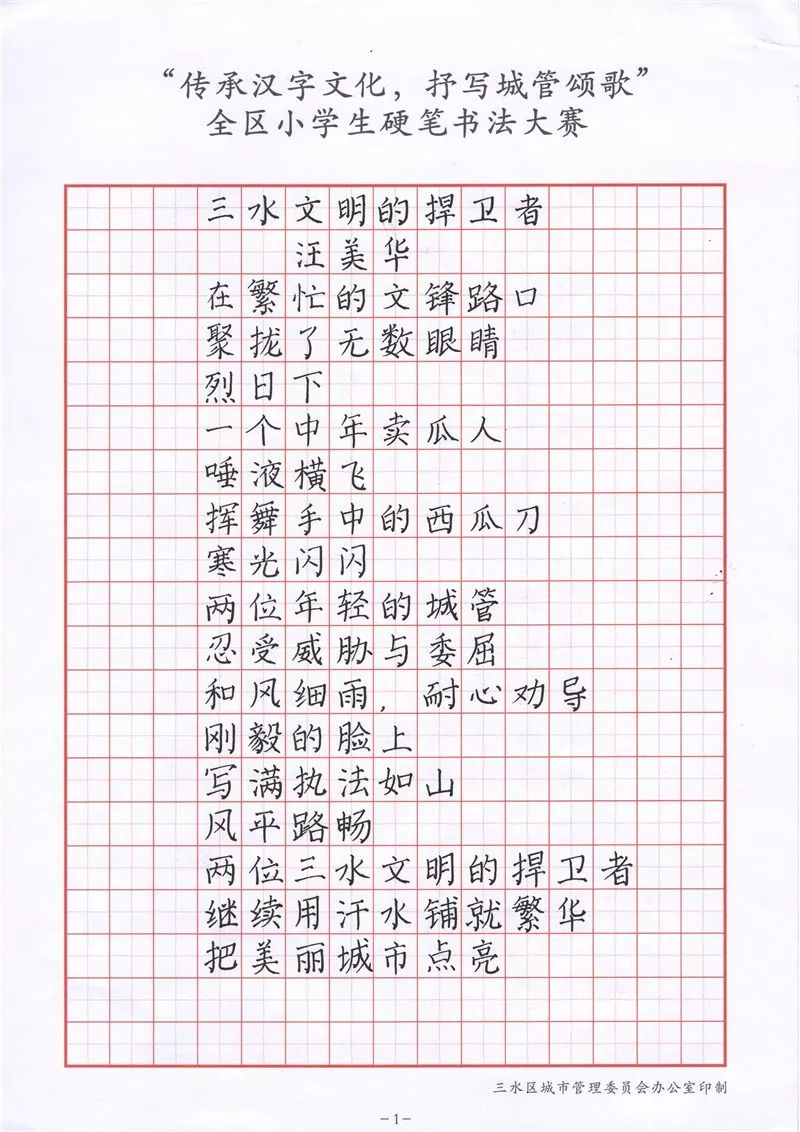 “传承汉字文化，抒写城管颂歌”
全区小学生硬笔书法大赛
三水文明的捍卫者
汪美华
在繁忙的文锋路口
聚拢了无数眼睛
烈日下
一个中年卖瓜人
唾液横飞
挥舞手中的西瓜刀
寒光闪闪
两位年轻的城管
忍受威胁与委屈
和风细雨，耐心劝导
刚毅的脸上
写满执法如山
风平路畅
两位三水文明的捍卫者
继续用汗水铺就繁华
把美丽城市点亮
三水区城市管理委员会办公室印制
-1-